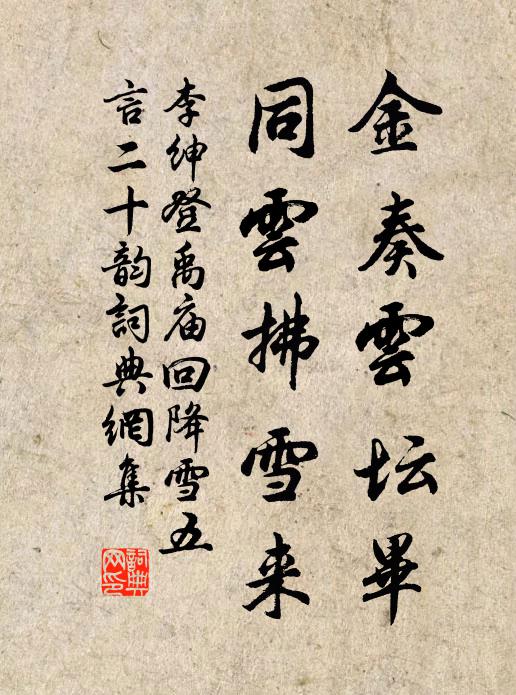 金奏雲坛畢
同雲拂雪来
李绅登禹庙回降雪五
言二十韵詞典網集
詞典
网印